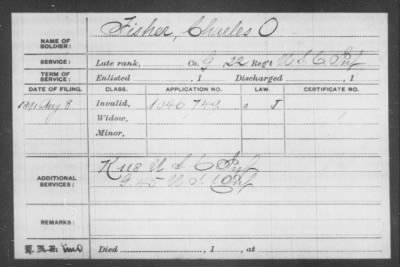 NAME OF SOLDIER: Fisher, Charles O
SERVICE: Late rank, Co. G 22 Reg't U S C Inf
TERM OF SERVICE: Enlisted , 1 Discharged , 1
DATE OF FILING. CLASS. APPLICATION NO. LAW. CERTIFICATE NO.
1891 Aug 8 Invalid, J
Widow,
Minor,
ADDITIONAL SERVICES: K 118 U S C Inf
G 45 U S C Inf
REMARKS:
Died , 1 , at